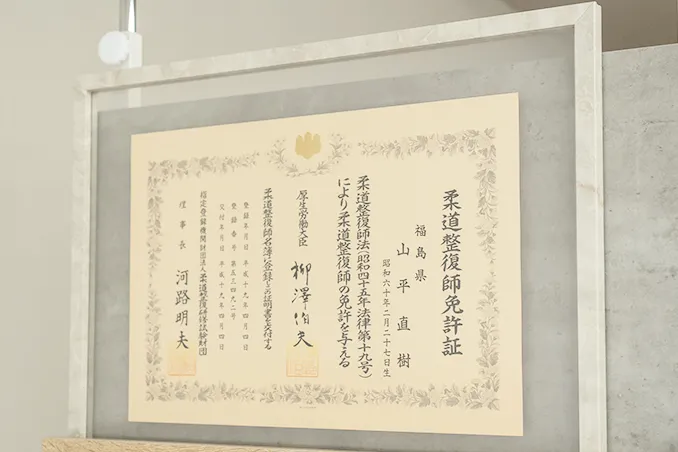 柔道整復師免許証
福島県
山平直樹
昭和六十年二月二十七日生
柔道整復師法(昭和四十五年法律第十九号)
により柔道整復師の免許を与える
厚生労働大臣 柳澤伯夫
柔道整復師名簿に登録しこの証明書を交付する
登録年月日 平成十九年四月四日
登録番号 第五三四九二号
交付年月日 平成十九年四月四日
指定登録機関財団法人柔道整復研修試験財団
理事長 河路明夫